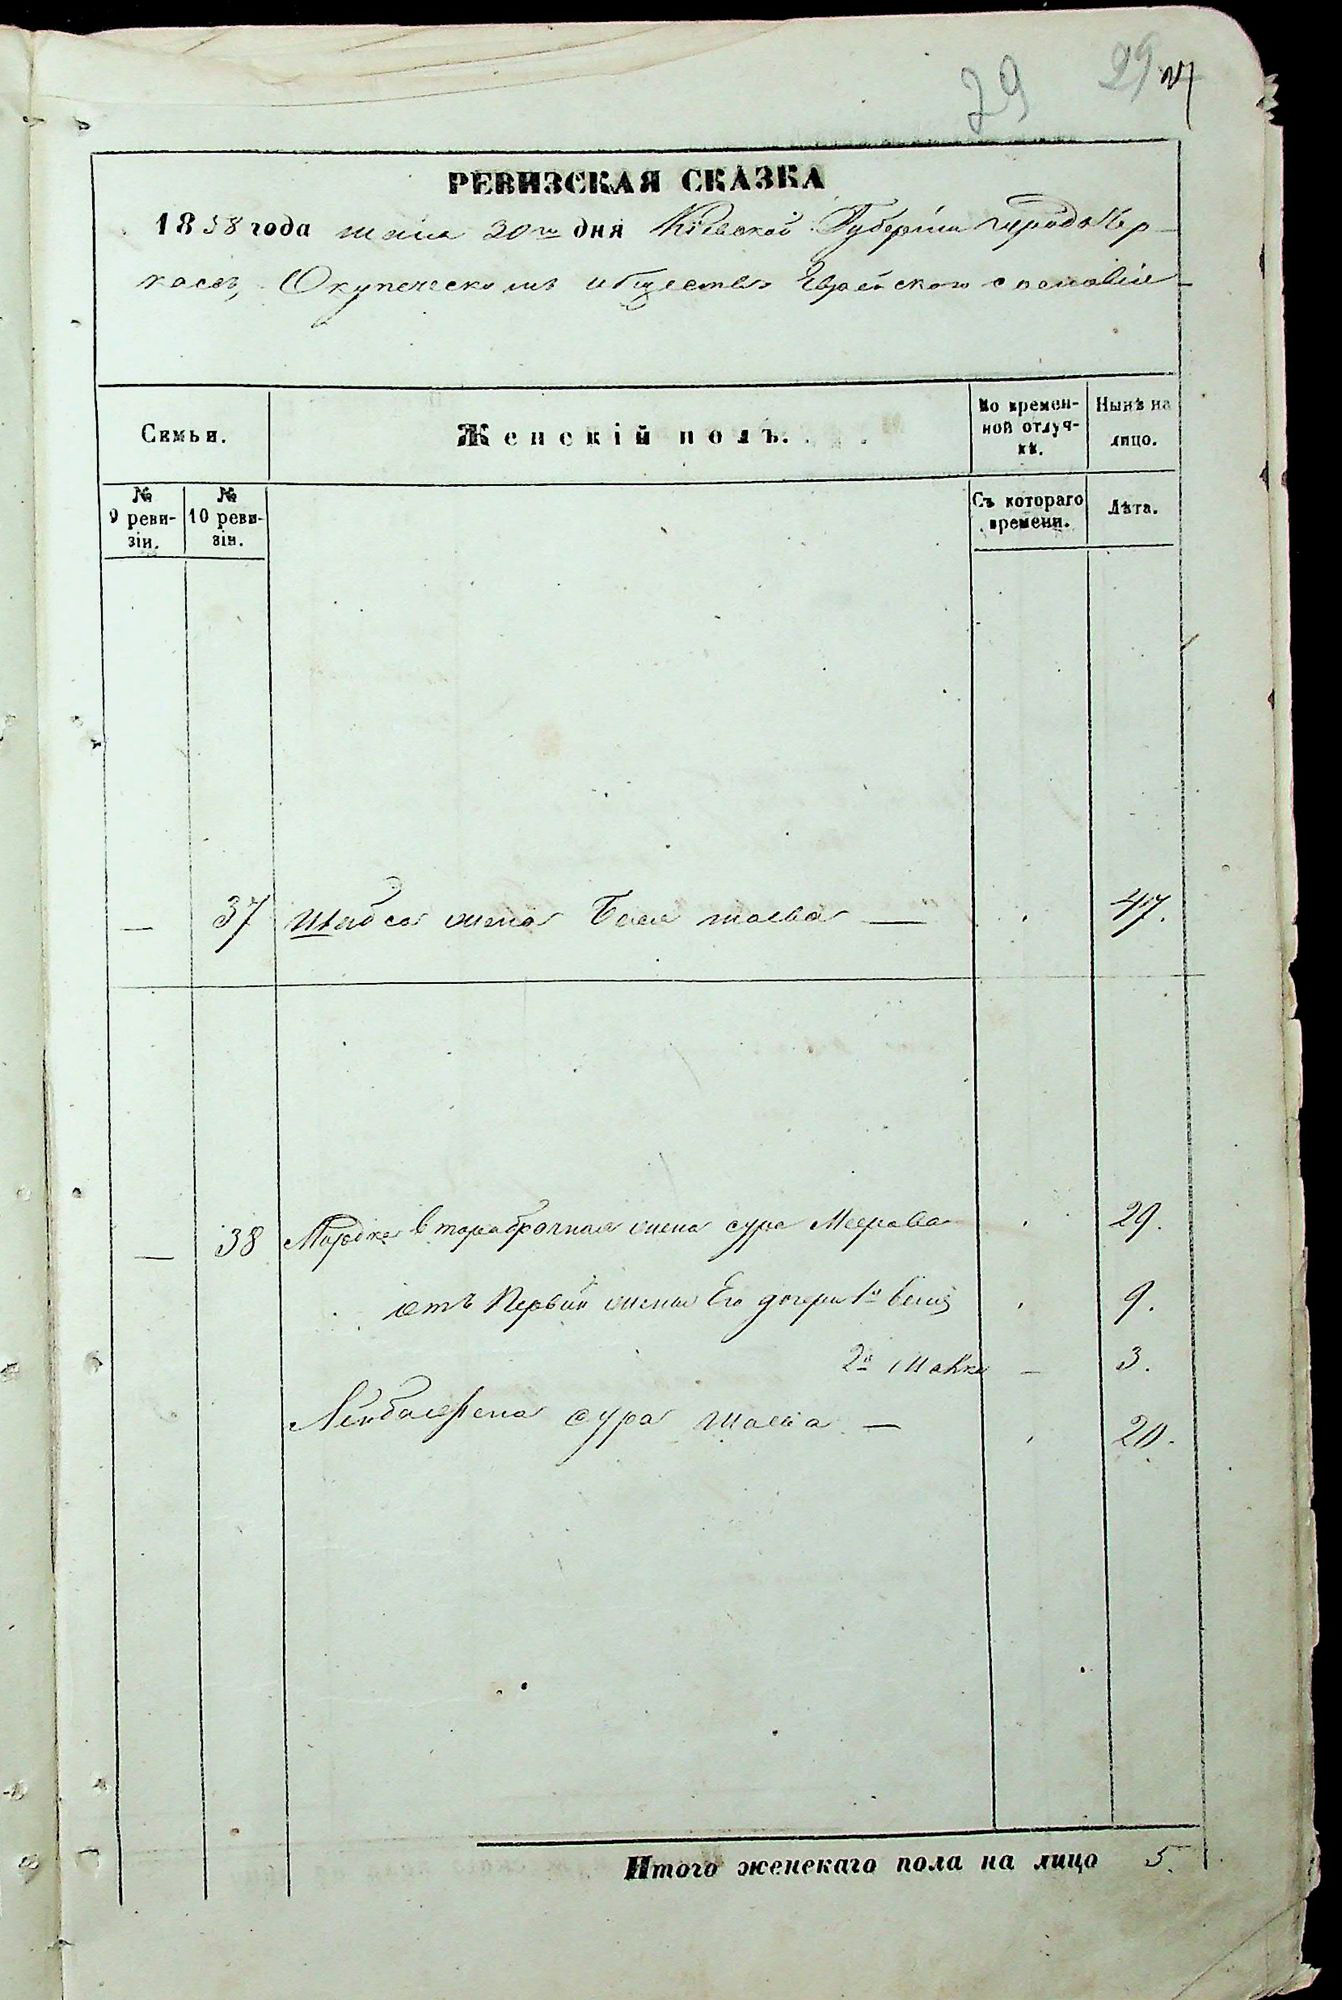 29 29
РЕВИЗСКАЯ СКАЗКА
1858 года мая 20го дня Кіевской Губерніи города Чер-
касъ, О купеческомъ обществѣ Еврейского сословія
Семьи.
Женскій полъ.
Во времен-
ной отлуч-
кѣ.
Нынѣ на
лицо.
№
9 реви-
зіи.
№
10 реви-
зіи.
Съ котораго
времени.
Лѣта.
— 37 жена — 47.
— 38 второбрачная жена сура Меерова 29.
отъ Первой жены Его дочери 1я 9.
2я — 3.
жена сура — 20.
Итого женскаго пола на лицо 5.